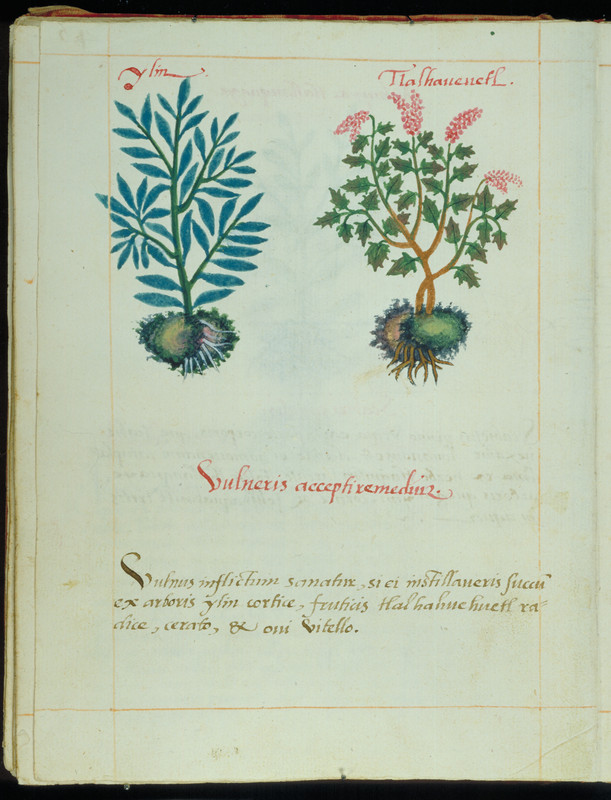 Ylin.
Tlalhaueuetl.
Vulneris accepti remediũ.
Vulnus inflictum sanatur, si ei instillaueris succũ
ex arboris ylin cortice, fruticis tlalhahuehuetl ra=
dice, cerato, & oui vitello.